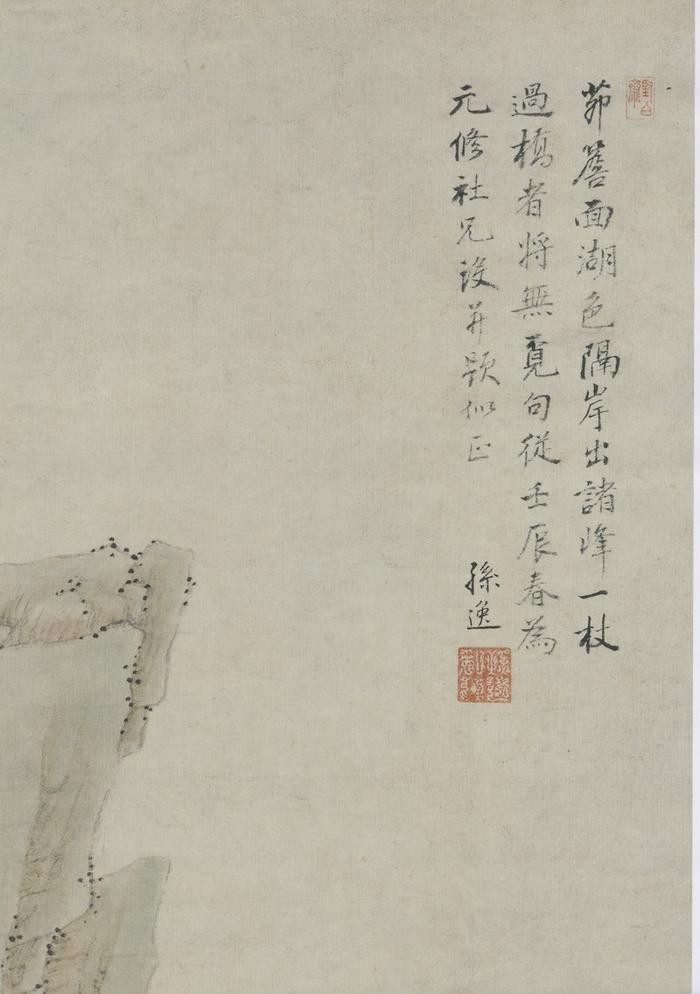 茆簷面湖色隔岸出諸峰一杖
過橋者將無覓句從壬辰春為
元修社兄設并題似正
孫逸